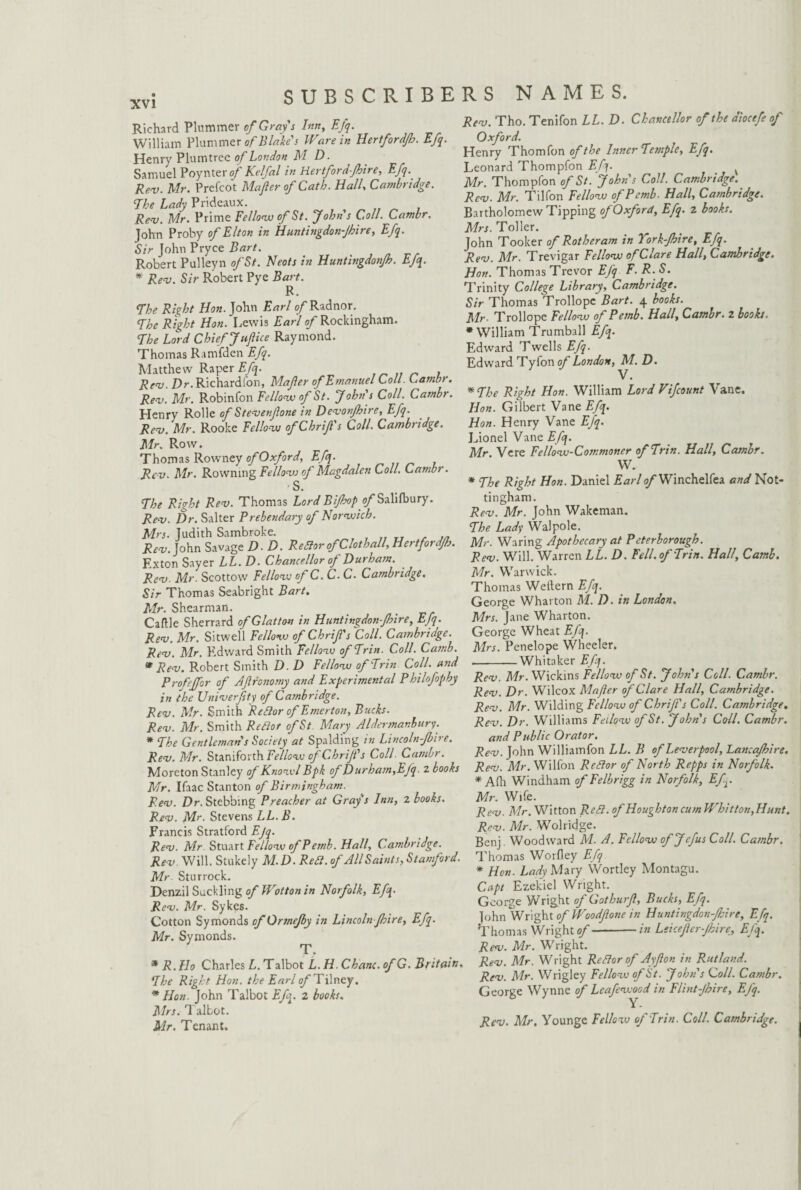 xvi
SUBSCRIBERS NAMES.
Richard Plummer of Gray's Inn, Eſq.
William Plummer of Blake's Ware in Hertfordſh. Eſq.
Henry Plumtree of London M D.
Samuel Poynter of Kelſal in Hertford-ſhire, Eſq.
Rev. Mr. Preſcot Maſter of Cath. Hall, Cambridge.
The Lady Prideaux.
Rev. Mr. Prime Fellow of St. John's Coll. Cambr.
John Proby of Elton in Huntingdon-ſhire, Eſq.
Sir John Pryce Bart.
Robert Pulleyn of St. Neots in Huntingdonſh. Eſq.
* Rev. Sir Robert Pye Bart.
R.
The Right Hon. John Earl of Radnor.
The Right Hon. Lewis Earl of Rockingham.
The Lord Chief Juſtice Raymond.
Thomas Ramſden Eſq.
Matthew Raper Eſq.
Rev. Dr. Richardſon, Maſter of Emanuel Coll. Cambr.
Rev. Mr. Robinſon Fellow of St. John's Coll. Cambr.
Henry Rolle of Stevenſtone in Devonſhire, Eſq.
Rev. Mr. Rooke Fellow of Chriſt's Coll. Cambridge.
Mr. Row.
Thomas Rowney of Oxford, Eſq.
Rev. Mr. Rowning Fellow of Magdalen Coll. Cambr.
S.
The Right Rev. Thomas Lord Biſhop of Saliſbury.
Rev. Dr. Salter Prebendary of Norwich.
Mrs. Judith Sambroke.
Rev. John Savage D. D. Rector of Clothall, Hertfordſh.
Exton Sayer LL. D. Chancellor of Durham.
Rev. Mr. Scottow Fellow of C. C. C. Cambridge.
Sir Thomas Seabright Bart.
Mr. Shearman.
Caſtle Sherrard of Glatton in Huntingdon-ſhire, Eſq.
Rev. Mr. Sitwell Fellow of Chriſt's Coll. Cambridge.
Rev. Mr. Edward Smith Fellow of Trin. Coll. Camb.
* Rev. Robert Smith D. D Fellow of Trin Coll. and
Profeſſor of Aſtronomy and Experimental Philoſophy
in the Univerſity of Cambridge.
Rev. Mr. Smith Rector of Emerton, Bucks.
Rev. Mr. Smith Rector of St. Mary Aldermanbury.
* The Gentleman's Society at Spalding in Lincoln-ſhire.
Rev. Mr. Staniforth Fellow of Chriſt's Coll. Cambr.
Moreton Stanley of Knowl Bpk of Durham, Eſq. 2 books
Mr. Iſaac Stanton of Birmingham.
Rev. Dr. Stebbing Preacher at Gray's Inn, 2 books.
Rev. Mr. Stevens LL. B.
Francis Stratford Eſq.
Rev. Mr. Stuart Fellow of Pemb. Hall, Cambridge.
Rev. Will. Stukely M.D. Rect. of All Saints, Stamford.
Mr. Sturrock.
Denzil Suckling of Wotton in Norfolk, Eſq.
Rev. Mr. Sykes.
Cotton Symonds of Ormeſby in Lincoln-ſhire, Eſq.
Mr. Symonds.
T.
* R. Ho Charles L. Talbot L. H. Chanc. of G. Britain.
The Right Hon. the Earl of Tilney.
* Hon. John Talbot Eſq. 2 books.
Mrs. Talbot.
Mr. Tenant.
Rev. Tho. Teniſon LL. D. Chancellor of the dioceſe of
Oxford.
Henry Thomſon of the Inner Temple, Eſq.
Leonard Thompſon Eſq.
Mr. Thompſon of St. John's Coll. Cambridge.
Rev. Mr. Tilſon Fellow of Pemb. Hall, Cambridge.
Bartholomew Tipping of Oxford, Eſq. 2 books.
Mrs. Toller.
John Tooker of Rotheram in York-ſhire, Eſq.
Rev. Mr. Trevigar Fellow of Clare Hall, Cambridge.
Hon. Thomas Trevor Eſq F. R. S.
Trinity College Library, Cambridge.
Sir Thomas Trollope Bart. 4 books.
Mr. Trollope Fellow of Pemb. Hall, Cambr. 2 books.
* William Trumball Eſq.
Edward Twells Eſq.
Edward Tyſon of London, M. D.
V.
* The Right Hon. William Lord Viſcount Vane.
Hon. Gilbert Vane Eſq.
Hon. Henry Vane Eſq.
Lionel Vane Eſq.
Mr. Vere Fellow-Commoner of Trin. Hall, Cambr.
W.
* The Right Hon. Daniel Earl of Winchelſea and Not-
tingham.
Rev. Mr. John Wakeman.
The Lady Walpole.
Mr. Waring Apothecary at Peterborough.
Rev. Will. Warren LL. D. Fell. of Trin. Hall, Camb.
Mr. Warwick.
Thomas Weſtern Eſq.
George Wharton M. D. in London.
Mrs. Jane Wharton.
George Wheat Eſq.
Mrs. Penelope Wheeler.
——— Whitaker Eſq.
Rev. Mr. Wickins Fellow of St. John's Coll. Cambr.
Rev. Dr. Wilcox Maſter of Clare Hall, Cambridge.
Rev. Mr. Wilding Fellow of Chriſt's Coll. Cambridge.
Rev. Dr. Williams Fellow of St. John's Coll. Cambr.
and Public Orator.
Rev. John Williamſon LL. B of Leverpool, Lancaſhire.
Rev. Mr. Wilſon Rector of North Repps in Norfolk.
* Aſh Windham of Felbrigg in Norfolk, Eſq.
Mr. Wiſe.
Rev. Mr. Witton Rect. of Houghton cum Whitton, Hunt.
Rev. Mr. Wolridge.
Benj. Woodward M. A. Fellow of Jeſus Coll. Cambr.
Thomas Worſley Eſq
* Hon. Lady Mary Wortley Montagu.
Capt Ezekiel Wright.
George Wright of Gothurſt, Bucks, Eſq.
John Wright of Woodſtone in Huntingdon-ſhire, Eſq.
Thomas Wright of ——— in Leiceſter-ſhire, Eſq.
Rev. Mr. Wright.
Rev. Mr. Wright Rector of Ayſton in Rutland.
Rev. Mr. Wrigley Fellow of St. John's Coll. Cambr.
George Wynne of Leaſewood in Flint-ſhire, Eſq.
Y.
Rev. Mr. Younge Fellow of Trin. Coll. Cambridge.